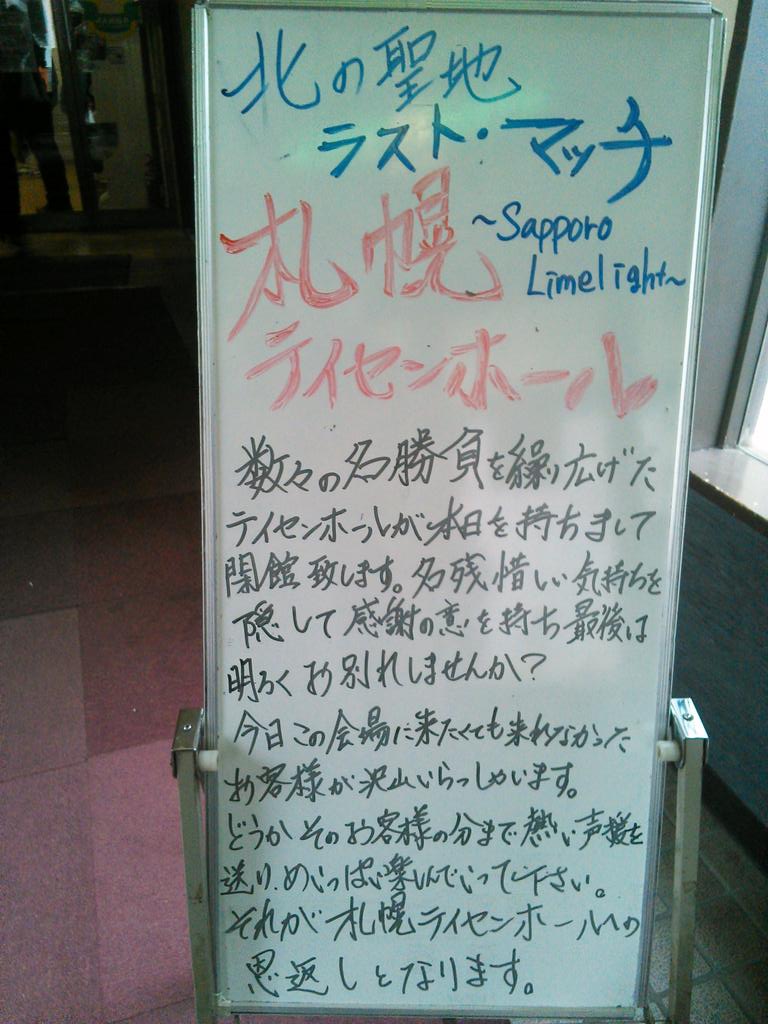 北の聖地
ラスト・マッチ
札幌 ~Sapporo
Limelight~
テイセンホール
数々の名勝負を繰り広げた
テイセンホールが本日を持ちまして
閉館致します。名残惜しい気持ちを
隠して感謝の意を持ち最後は
明るくお別れしませんか?
今日この会場に来たくても来れなかった
お客様が沢山いらっしゃいます。
どうかそのお客様の分まで熱い声援を
送り、めいっぱい楽しんでいって下さい。
それが札幌テイセンホールへの
恩返しとなります。